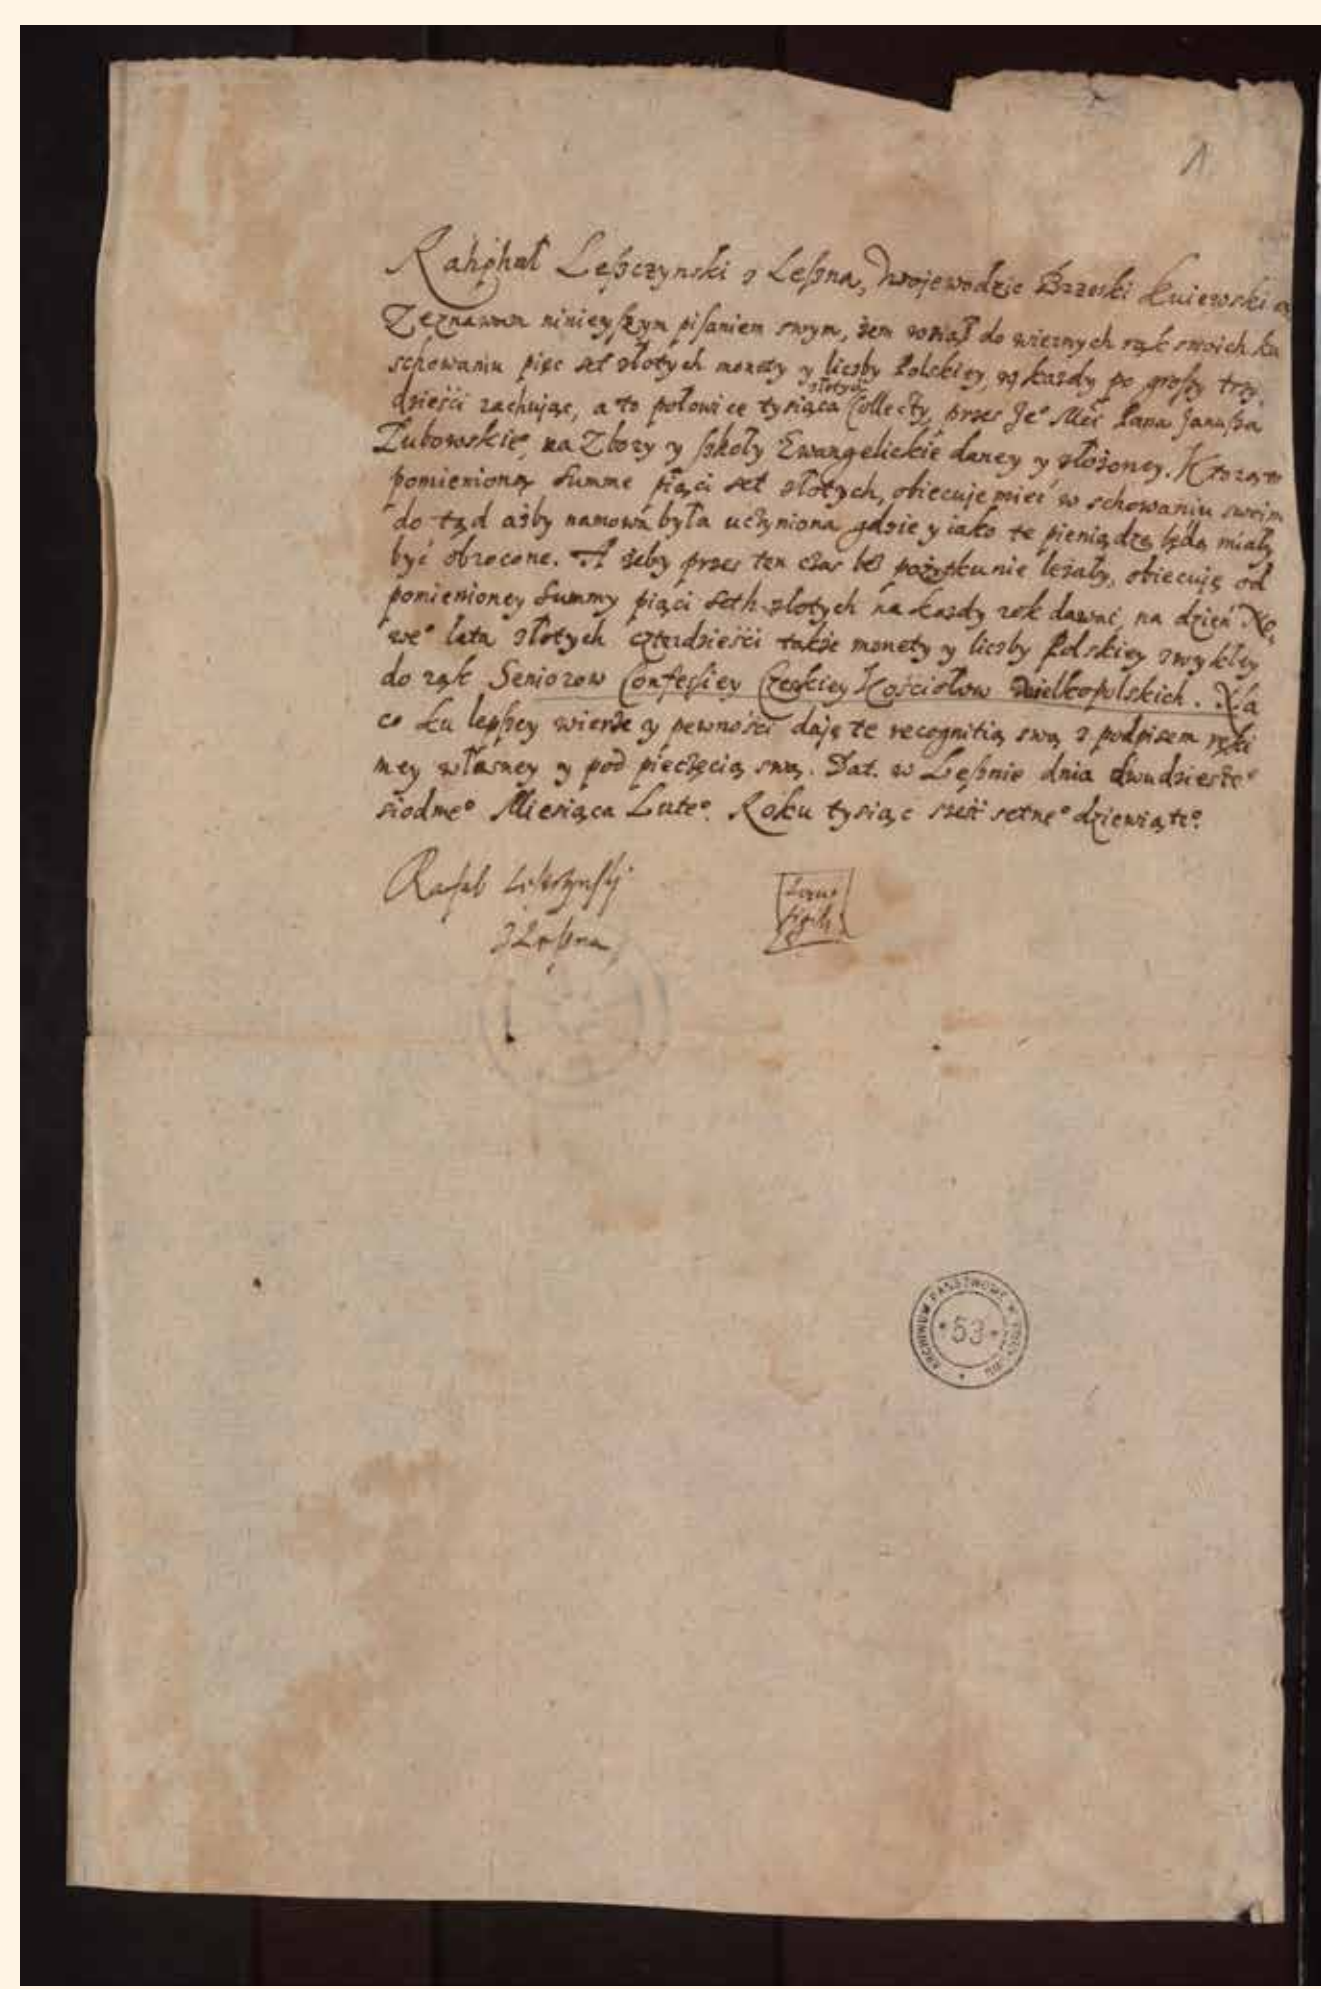 1
Raphał Leszczynski z Leszna, Woiewodzic Brzeski Kuiewski
Zeznawam ninieyszym pisaniem swym, żem wziął do wiernych rąk swoich ku
schowaniu pięc set złotych monety y liczby Polskiey, w każdy po groszy trzy,
dzieści rachując, a to połowicę tysiąca złotych Collecty, przez Je° Mći Pana Janusza
na Zbory y szkoły Ewangelickie daney y złożoney. Którą to
pomienioną Summę piąci set złotych, obiecuję mieć w schowaniu swoim
do tąd ażby namowa była uczyniona gdzie y iako te pieniądze będą miały
być obrocone. A żeby przez ten czas bez pożytku nie leżały, obiecuję od
pomienioney Summy piąci seth złotych na każdy rok dawać, na dzień No,
we° lata złotych czterdzieści także monety y liczby Polskiey zwykłey
do rąk Seniorow Confessiey Czeskiey Kościołow Wielkopolskich. Na
co ku lepszey wierze y pewności daję tę recognitią swą z podpisem ręki
mey własney y pod pieczęcią swą. Dat. w Lesznie dnia dwudzieste°
siodme° Miesiąca Lute°. Roku tysiąc sześć setne° dziewiąte°.
Rafał Leszczynsky
z Leszna
Locus
sigilli
ARCHIWUM PAŃSTWOWE W POZNANIU
* 53 *